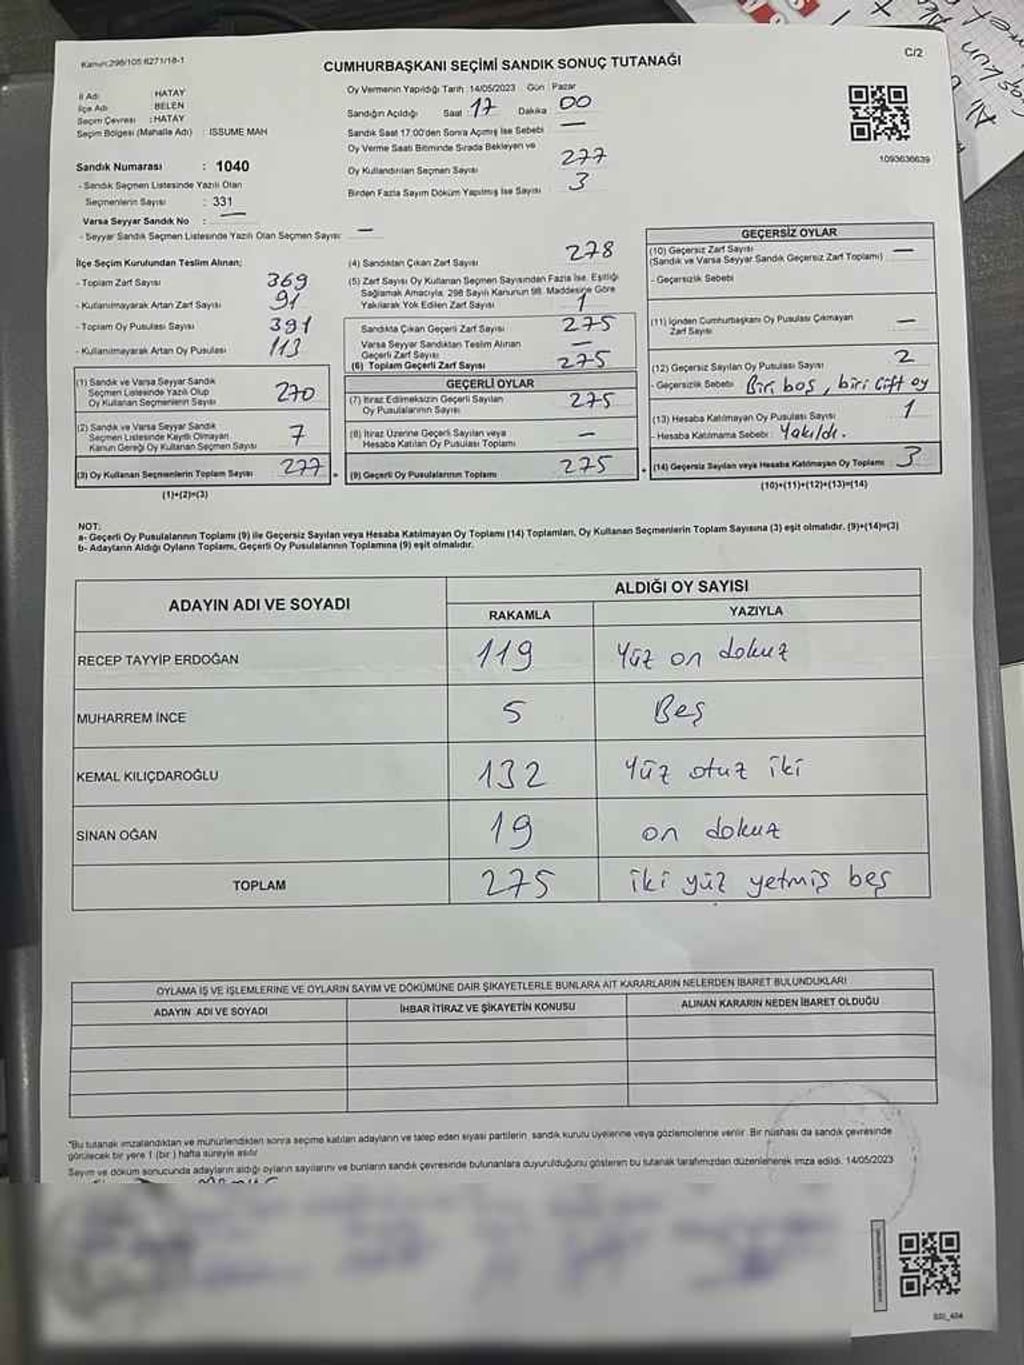 Kanun:298/105 6271/18-1
C/2
CUMHURBAŞKANI SEÇİMİ SANDIK SONUÇ TUTANAĞI
İl Adı : HATAY
İlçe Adı : BELEN
Seçim Çevresi : HATAY
Seçim Bölgesi (Mahalle Adı) : ISSUME MAH
Oy Vermenin Yapıldığı Tarih :14/05/2023 Gün : Pazar
Sandığın Açıldığı Saat : 17 Dakika 00
Sandık Saat 17:00'den Sonra Açmış İse Sebebi —
Oy Verme Saati Bitiminde Sırada Bekleyen ve
Oy Kullandırılan Seçmen Sayısı 277
Birden Fazla Sayım Döküm Yapılmış İse Sayısı 3
1093636639
Sandık Numarası : 1040
- Sandık Seçmen Listesinde Yazılı Olan
Seçmenlerin Sayısı : 331
Varsa Seyyar Sandık No : —
- Seyyar Sandık Seçmen Listesinde Yazılı Olan Seçmen Sayısı: —
İlçe Seçim Kurulundan Teslim Alınan;
- Toplam Zarf Sayısı 369
- Kullanılmayarak Artan Zarf Sayısı 91
- Toplam Oy Pusulası Sayısı 391
- Kullanılmayarak Artan Oy Pusulası 113
(1) Sandık ve Varsa Seyyar Sandık
Seçmen Listesinde Yazılı Olup
Oy Kullanan Seçmenlerin Sayısı 270
(2) Sandık ve Varsa Seyyar Sandık
Seçmen Listesinde Kayıtlı Olmayan
Kanun Gereği Oy Kullanan Seçmen Sayısı 7
(3) Oy Kullanan Seçmenlerin Toplam Sayısı 277
(1)+(2)=(3)
(4) Sandıktan Çıkan Zarf Sayısı 278
(5) Zarf Sayısı Oy Kullanan Seçmen Sayısından Fazla İse, Eşitliği
Sağlamak Amacıyla, 298 Sayılı Kanunun 98. Maddesine Göre
Yakılarak Yok Edilen Zarf Sayısı 1
Sandıkta Çıkan Geçerli Zarf Sayısı 275
Varsa Seyyar Sandıktan Teslim Alınan
Geçerli Zarf Sayısı —
(6) Toplam Geçerli Zarf Sayısı 275
GEÇERLİ OYLAR
(7) İtiraz Edilmeksizin Geçerli Sayılan
Oy Pusulalarının Sayısı 275
(8) İtiraz Üzerine Geçerli Sayılan veya
Hesaba Katılan Oy Pusulası Toplamı —
(9) Geçerli Oy Pusulalarının Toplamı 275
GEÇERSİZ OYLAR
(10) Geçersiz Zarf Sayısı —
(Sandık ve Varsa Seyyar Sandık Geçersiz Zarf Toplamı)
- Geçersizlik Sebebi
(11) İçinden Cumhurbaşkanı Oy Pusulası Çıkmayan
Zarf Sayısı —
(12) Geçersiz Sayılan Oy Pusulası Sayısı 2
- Geçersizlik Sebebi Biri boş, biri çift oy
(13) Hesaba Katılmayan Oy Pusulası Sayısı 1
- Hesaba Katılmama Sebebi Yakıldı.
(14) Geçersiz Sayılan veya Hesaba Katılmayan Oy Toplamı 3
(10)+(11)+(12)+(13)=(14)
NOT:
a- Geçerli Oy Pusulalarının Toplamı (9) ile Geçersiz Sayılan veya Hesaba Katılmayan Oy Toplamı (14) Toplamları, Oy Kullanan Seçmenlerin Toplam Sayısına (3) eşit olmalıdır. (9)+(14)=(3)
b- Adayların Aldığı Oyların Toplamı, Geçerli Oy Pusulalarının Toplamına (9) eşit olmalıdır.
ADAYIN ADI VE SOYADI
ALDIĞI OY SAYISI
RAKAMLA YAZIYLA
RECEP TAYYİP ERDOĞAN 119 Yüz on dokuz
MUHARREM İNCE 5 Beş
KEMAL KILIÇDAROĞLU 132 Yüz otuz iki
SİNAN OĞAN 19 on dokuz
TOPLAM 275 iki yüz yetmiş beş
OYLAMA İŞ VE İŞLEMLERİNE VE OYLARIN SAYIM VE DÖKÜMÜNE DAİR ŞİKAYETLERLE BUNLARA AİT KARARLARIN NELERDEN İBARET BULUNDUKLARI
ADAYIN ADI VE SOYADI İHBAR İTİRAZ VE ŞİKAYETİN KONUSU ALINAN KARARIN NEDEN İBARET OLDUĞU
*Bu tutanak imzalandıktan ve mühürlendikten sonra seçime katılan adayların ve talep eden siyasi partilerin, sandık kurulu üyelerine veya gözlemcilerine verilir. Bir nüshası da sandık çevresinde
görülecek bir yere 1 (bir ) hafta süreyle asılır
Sayım ve döküm sonucunda adayların aldığı oyların sayılarını ve bunların sandık çevresinde bulunanlara duyurulduğunu gösteren bu tutanak tarafımızdan düzenlenerek imza edildi. 14/05/2023